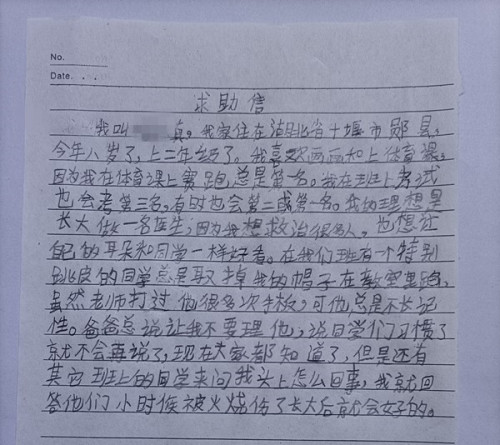 No.
Date. . .
求助信
我叫 真。我家住在湖北省十堰市郧县。
今年八岁了,上三年级了。我喜欢画画和上体育课。
因为我在体育课上赛跑总是第一名。我在班上考试
也会考第三名。有时也会第二或第一名。我的理想是
长大做一名医生,因为我想救治很多人。也想让
自己的耳朵和同学一样好看。在我们班有一个特别
跳皮的同学总是取掉我的帽子在教室里跑,
虽然老师打过他很多次手板,可他总是不长记
性。爸爸总说让我不要理他,说同学们习惯了
就不会再说了,现在大家都知道了,但是还有
其它班上的同学来问我头上怎么回事,我就回
答他们小时候被火烧伤了长大后就会好的。